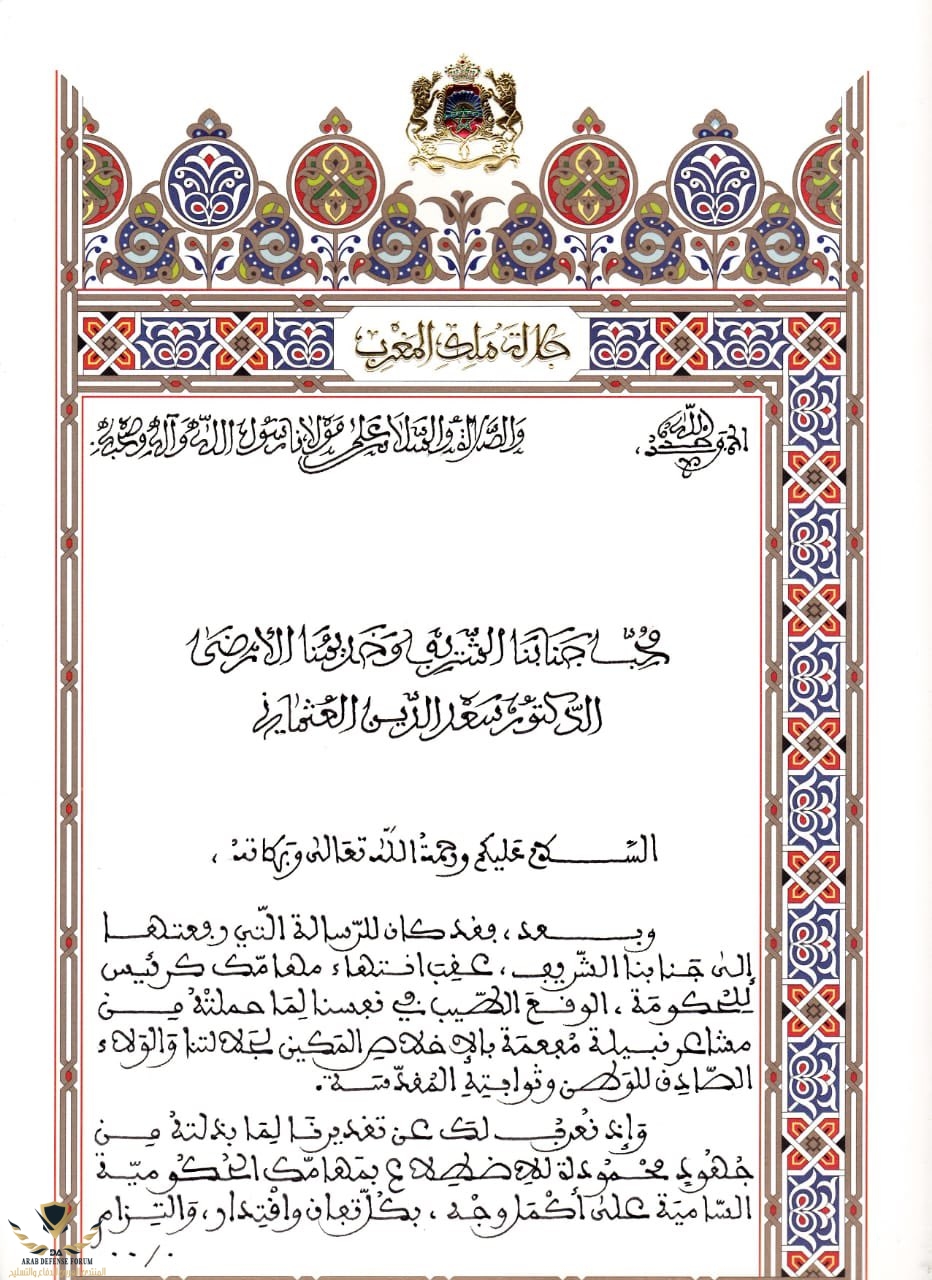 جلالة ملك المغرب
الحمد لله وحده،
والصلاة والسلام على مولانا رسول الله وآله وصحبه
محب جنابنا الشريف وخديمنا الأرضى
الدكتور سعد الدين العثماني
السلام عليكم ورحمة الله تعالى وبركاته،
وبعد، فقد كان للرّسالة التي رفعتها
إلى جنابنا الشّريف، عقب انتهاء مهامّك كرئيس
للحكومة، الوقع الطّيب في نفسنا لِمَا حملتْهُ مِن
مشاعر نبيلة مُفعمة بالإخلاص المكين لجلالتنا وَالوَلاء
الصّادق للوَطن وثوابتِهِ المُقدّسَة.
وَإذ نُعرب لكَ عن تقديرنا لِمَا بذلتهُ مِن
جُهُودٍ محْمُودة للاضطلاع بمَهامّك الحُكُوميّة
السّاميَة عَلى أكمل وجْه، بكلّ تفان واقْتِدار، وَالتِزام
٠٠/٠
DA
ARAB DEFENSE FORUM
المنتدى العربي للدفاع والتسليح